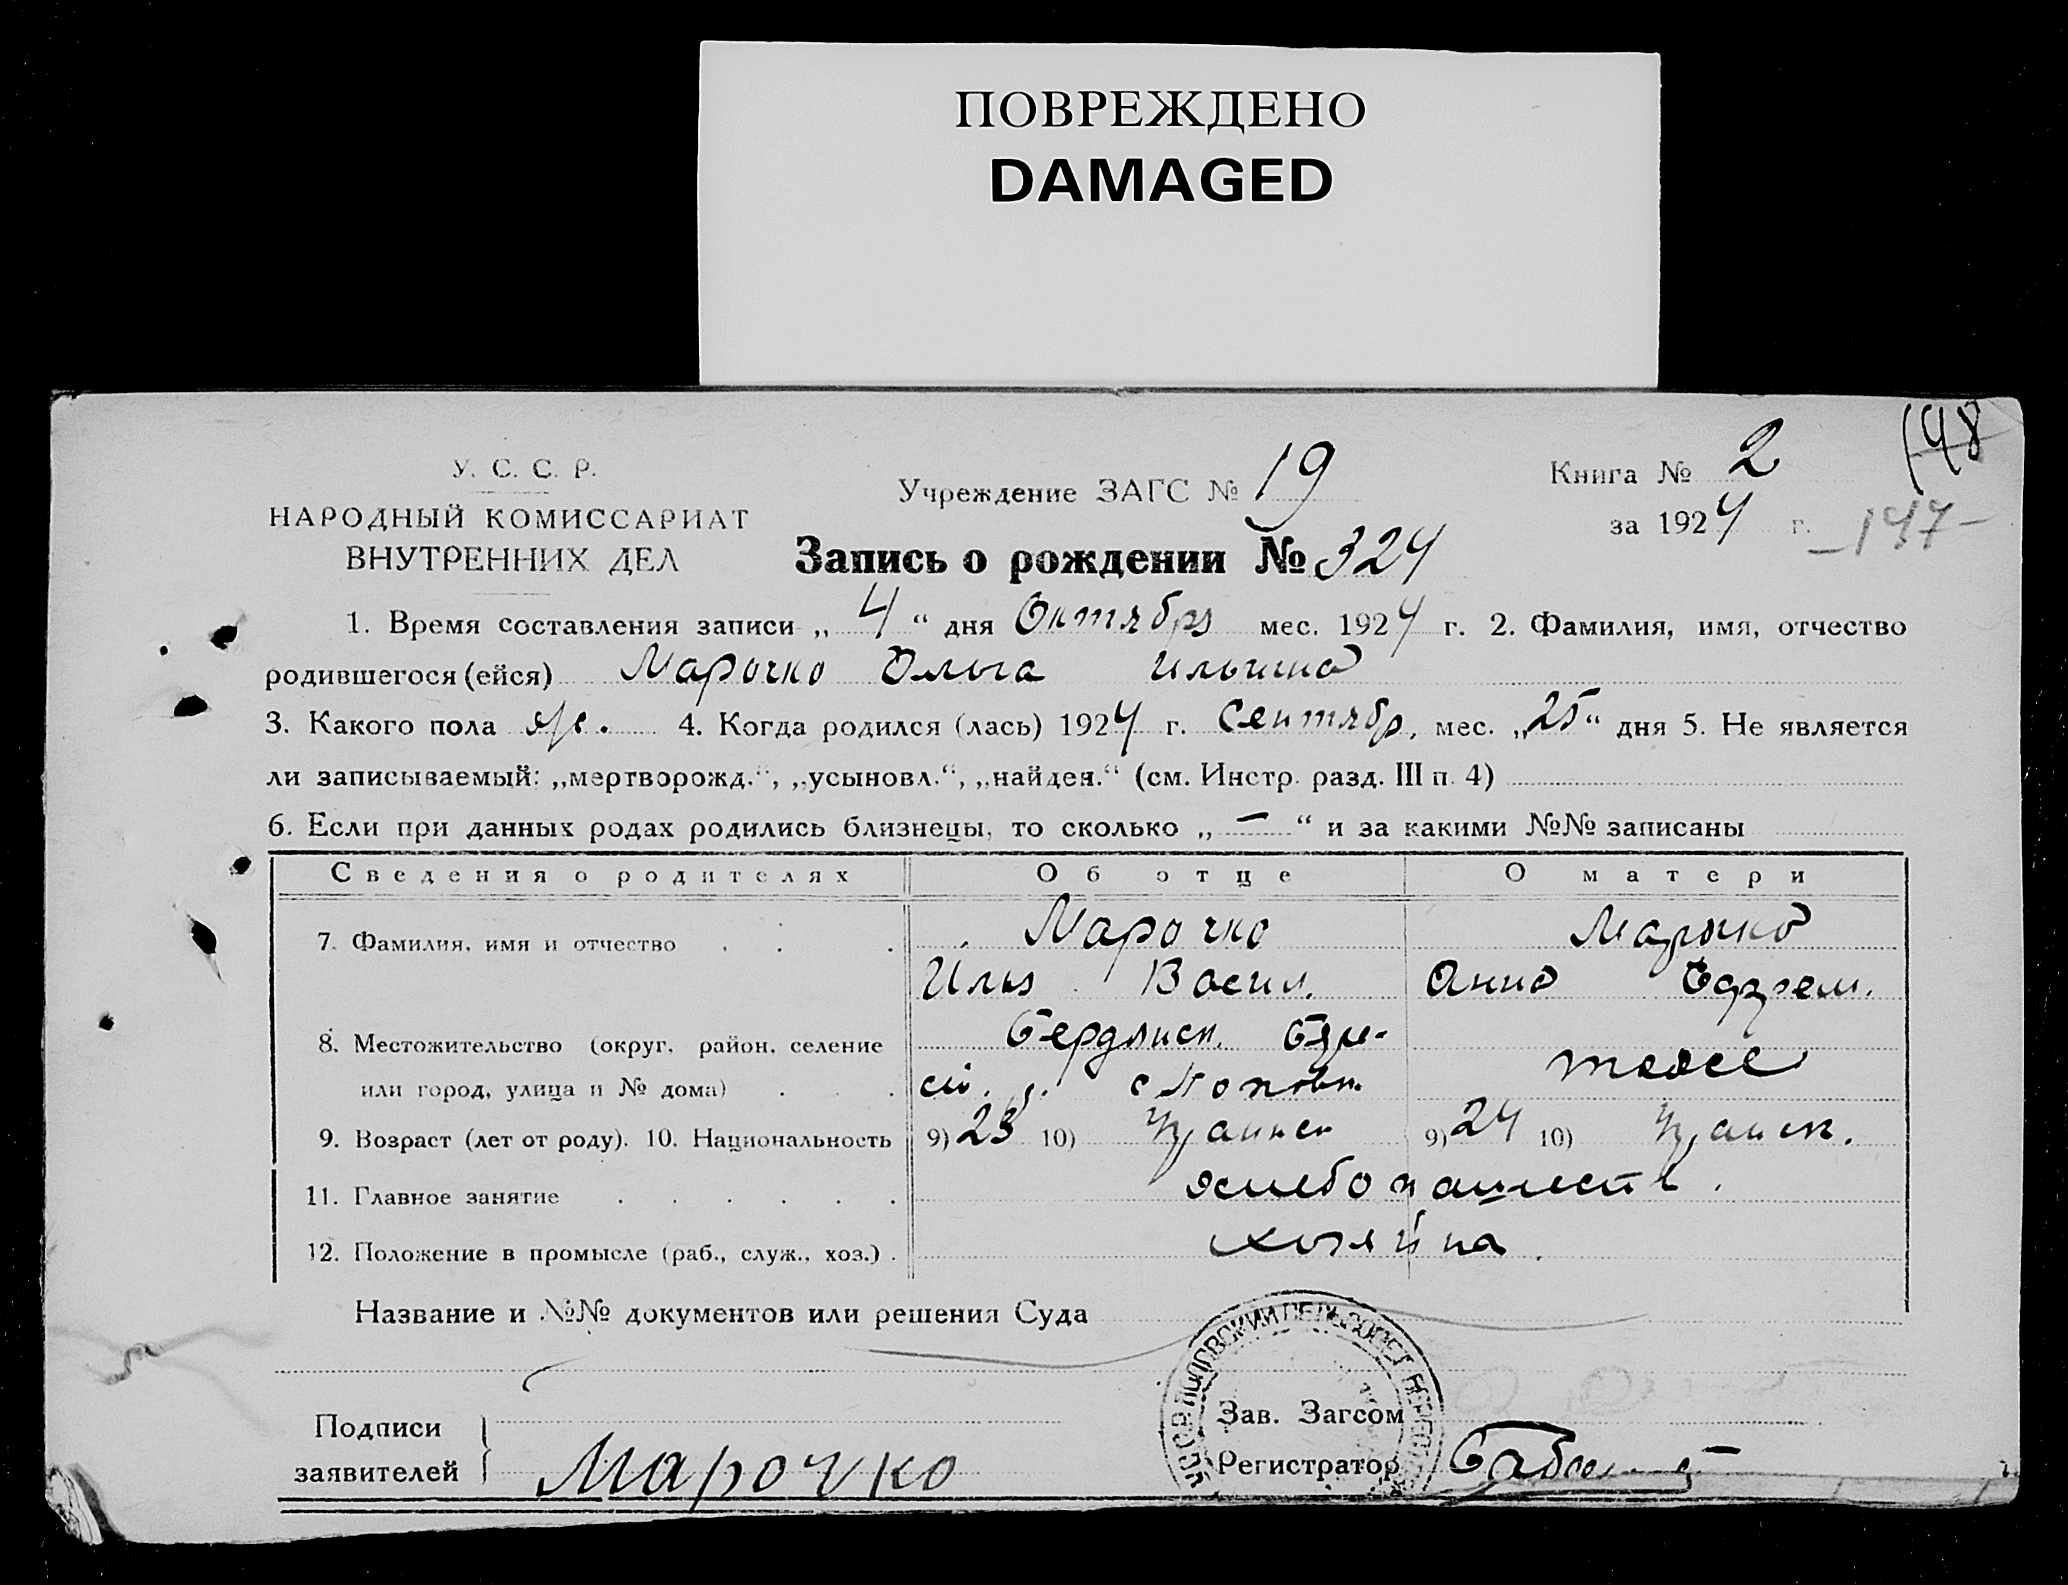 ПОВРЕЖДЕНО
DAMAGED
148
У. С. С. Р.
НАРОДНЫЙ КОМИССАРИАТ
ВНУТРЕННИХ ДЕЛ
Учреждение ЗАГС № 19
Книга № 2
за 1924 г.
—147—
Запись о рождении № 324
1. Время составления записи „ 4 “ дня Октября мес. 1924 г. 2. Фамилия, имя, отчество
родившегося (ейся) Марочко Ольга Ильична
3. Какого пола ж. 4. Когда родился (лась) 1924 г. Сентябр. мес. „25“ дня 5. Не является
ли записываемый: „мертворожд.“, „усыновл.“, „найден.“ (см. Инстр. разд. III п. 4)
6. Если при данных родах родились близнецы, то сколько „ — “ и за какими №№ записаны
Сведения о родителях Об отце О матери
7. Фамилия, имя и отчество Марочко Марочко
Илья Васил. Анна Ефрем.
8. Местожительство (округ, район, селение Бердянск.
или город, улица и № дома) тоже
9. Возраст (лет от роду). 10. Национальность 9) 23 10) Украинск 9) 24 10) Украинск.
11. Главное занятие хлебопашеств.
12. Положение в промысле (раб., служ., хоз.) хозяйка
Название и №№ документов или решения Суда
Подписи
заявителей
Марочко
Зав. Загсом
Регистратор